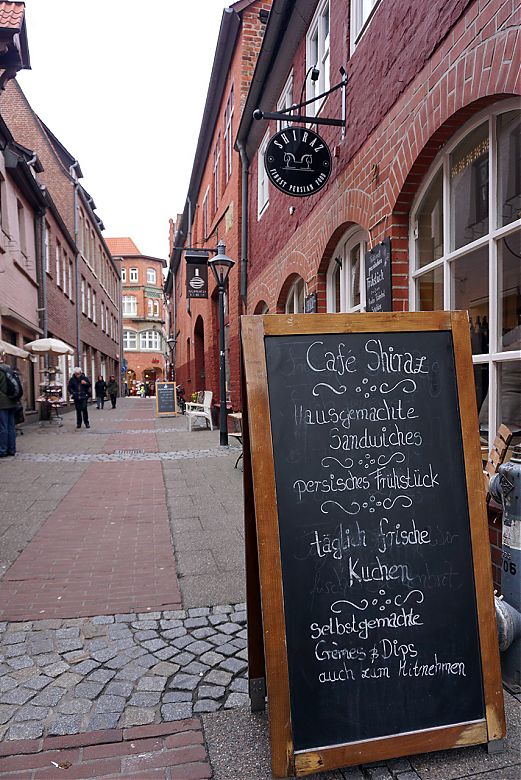 SHIRAZ
FINEST PERSIAN FOOD
Café Shiraz
Hausgemachte
Sandwiches
persisches Frühstück
täglich frische
Kuchen
selbstgemachte
Crèmes & Dips
auch zum Mitnehmen
06